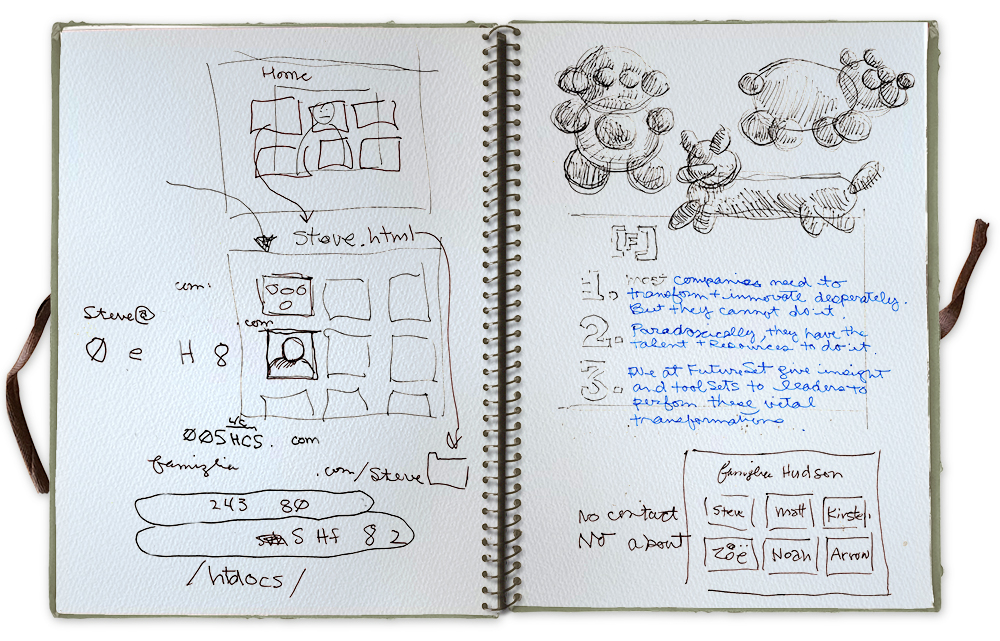 Home
Steve.html
com.
Steve@
.com
Ø e H 8
005HCS. com
famiglia
.com/Steve
243 80
S Hf 8 2
/htdocs/
[F]
1. most companies need to
transform + innovate desperately.
But they cannot do it.
2. Paradoxically, they have the
talent + Resources to do it.
3. We at FutureSet give insight
and toolSets to leaders to
perform these vital
transformations.
famiglia Hudson
No contact
No about
Steve
matt
Kirsten
Zoë
Noah
Arrow